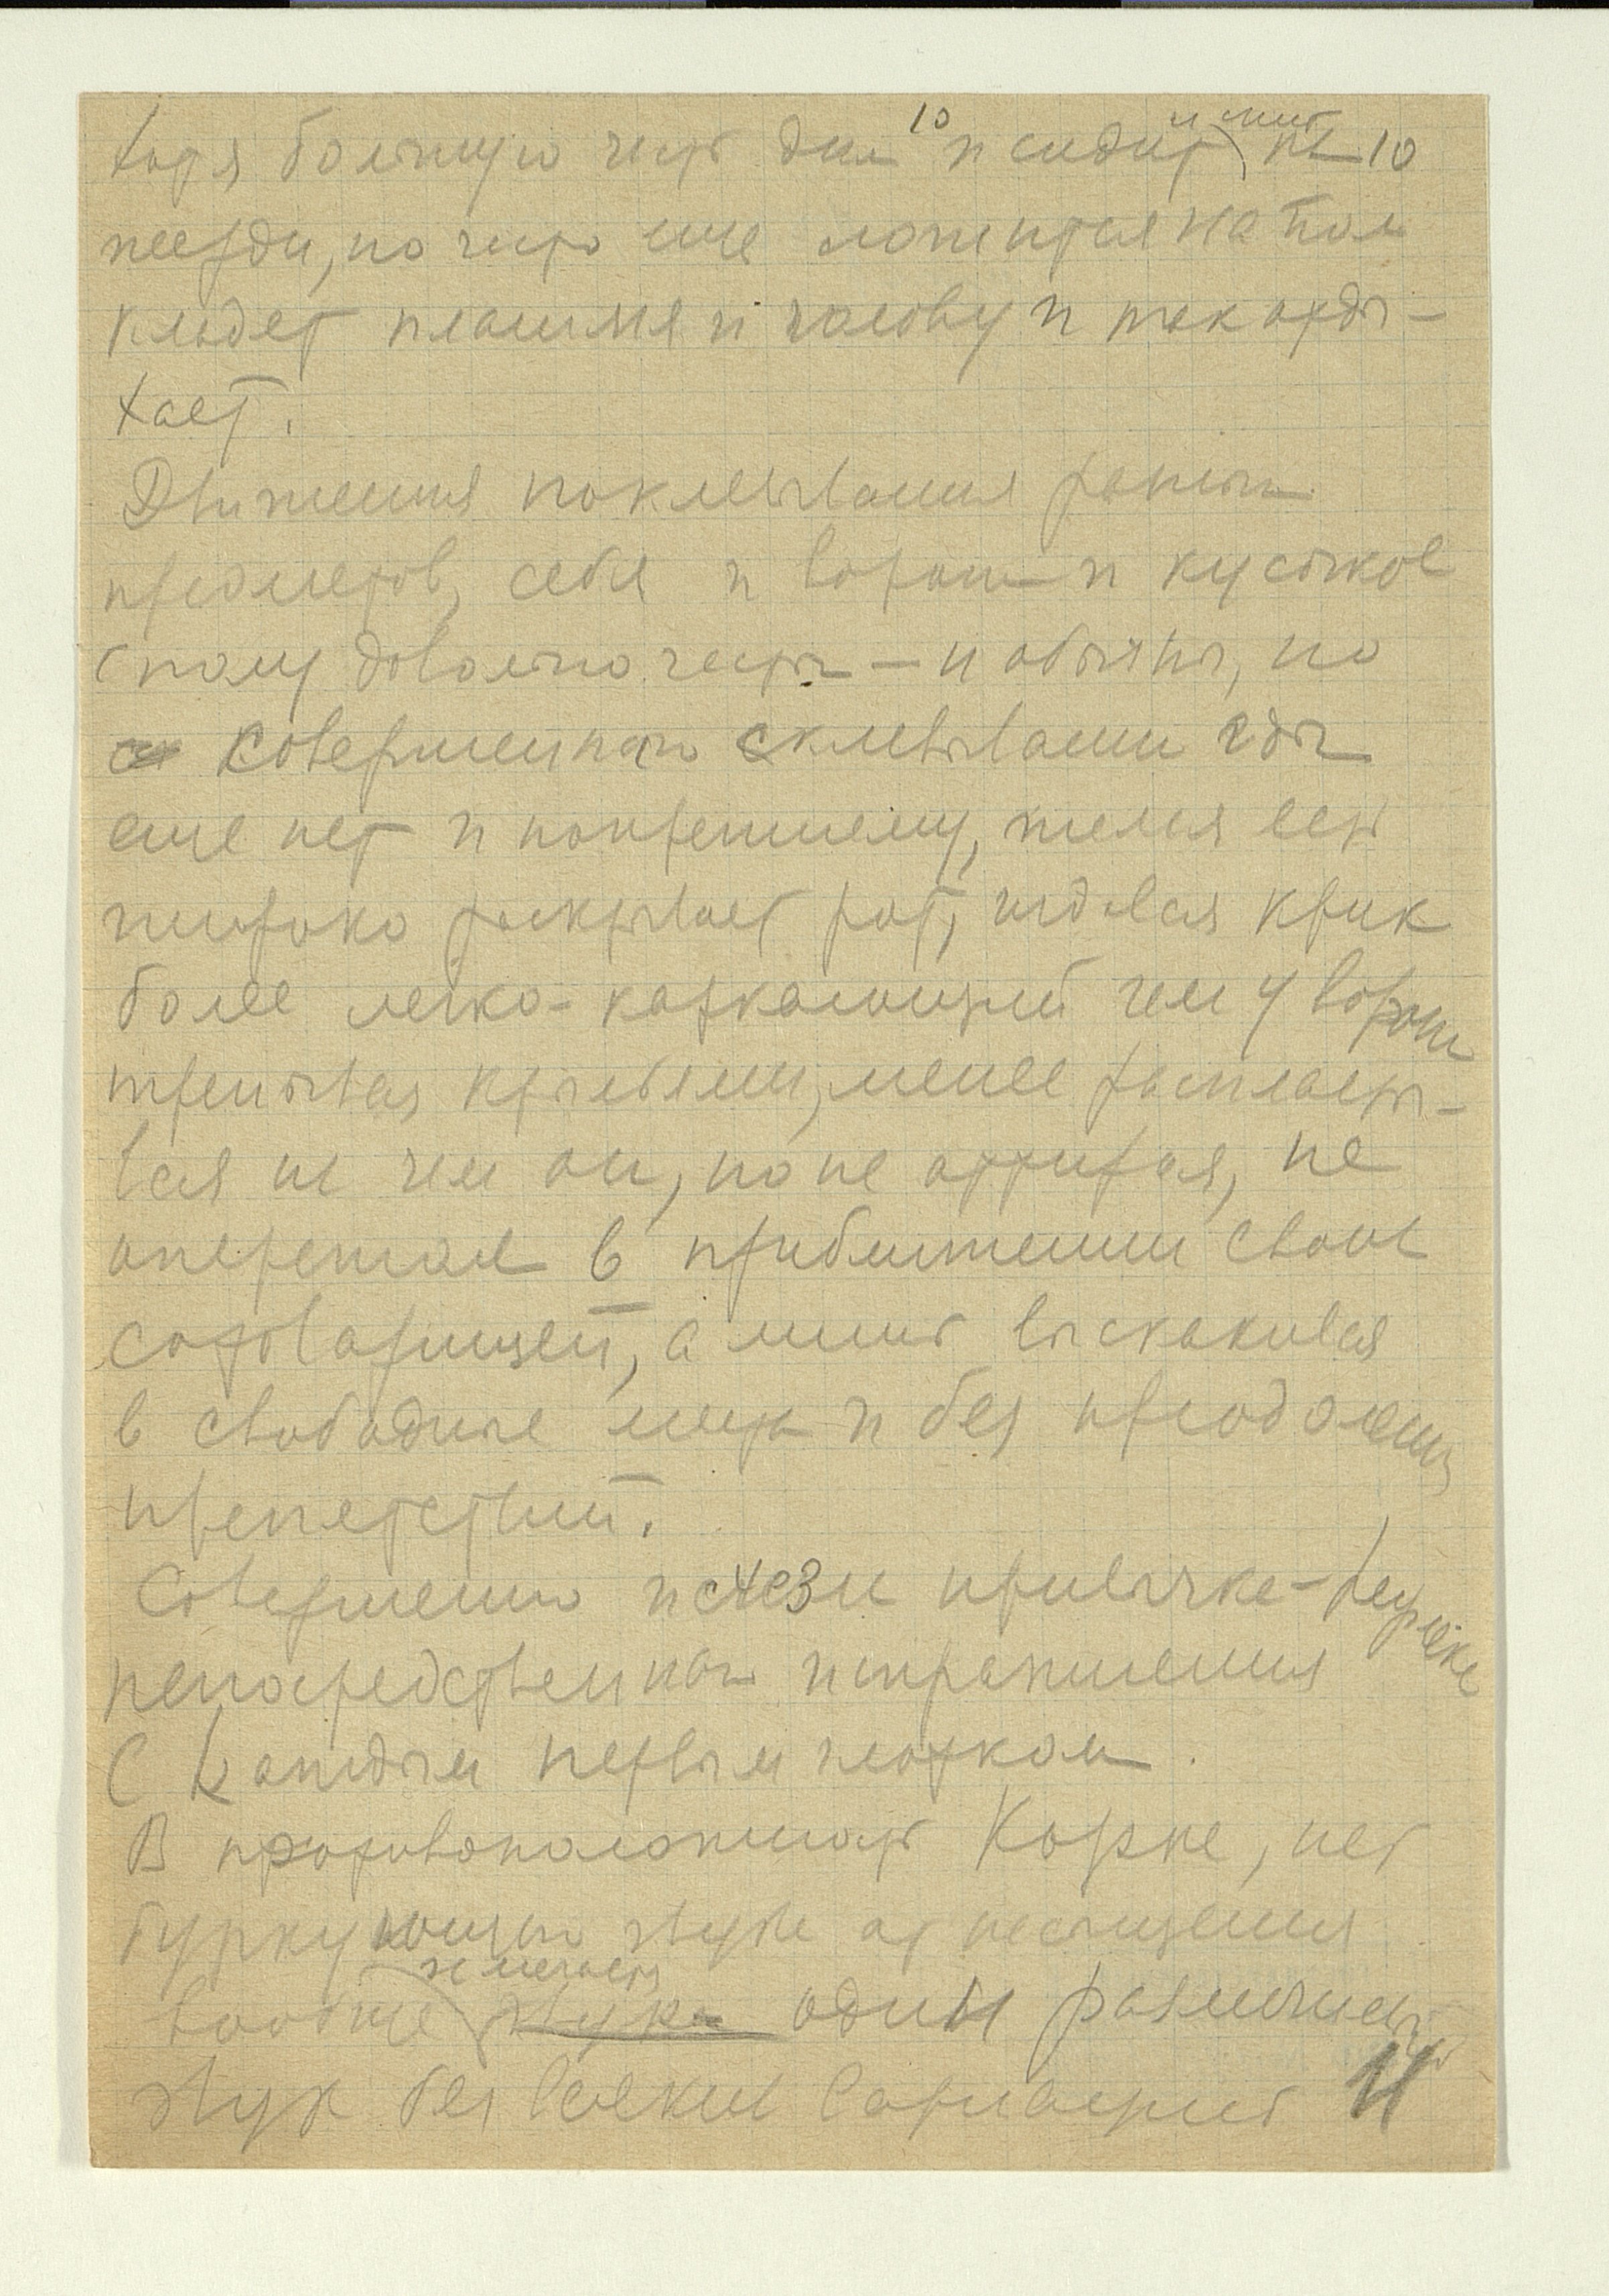 Хотя большую часть дня 10 и сидит и спит на 10
жерди, но часто еще ложится на пол
кладет плашмя и голову и так отды-
хает.
Движения поклевывания разных
предметов, себя и ворон и кусочков
с полу довольно часты — и обычны, но
совершенного склевывания еды
еще нет и попрежнему, желая есть
широко раскрывает рот, издавая крик
более легко-каркающий чем у ворон
трепыхая крыльями, менее распласты-
вая их чем он, но не оттирая, не
опережая в приближении своих
сотоварищей, а лишь выскакивая
в свободные места и без преодоления
препятствий.
Совершенно исчезли привычка-
непосредственного испражнения
с каждым первым глотком.
В противоположность Корке, нет
буркующего звука от насыщения
вообще замечается звука один различимый
звук без всяких вариаций 11